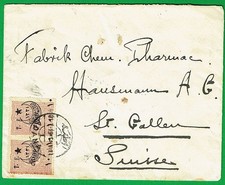 Fabrik Chem. Pharmac.
Hausmann A. G.
St. Gallen
Suisse